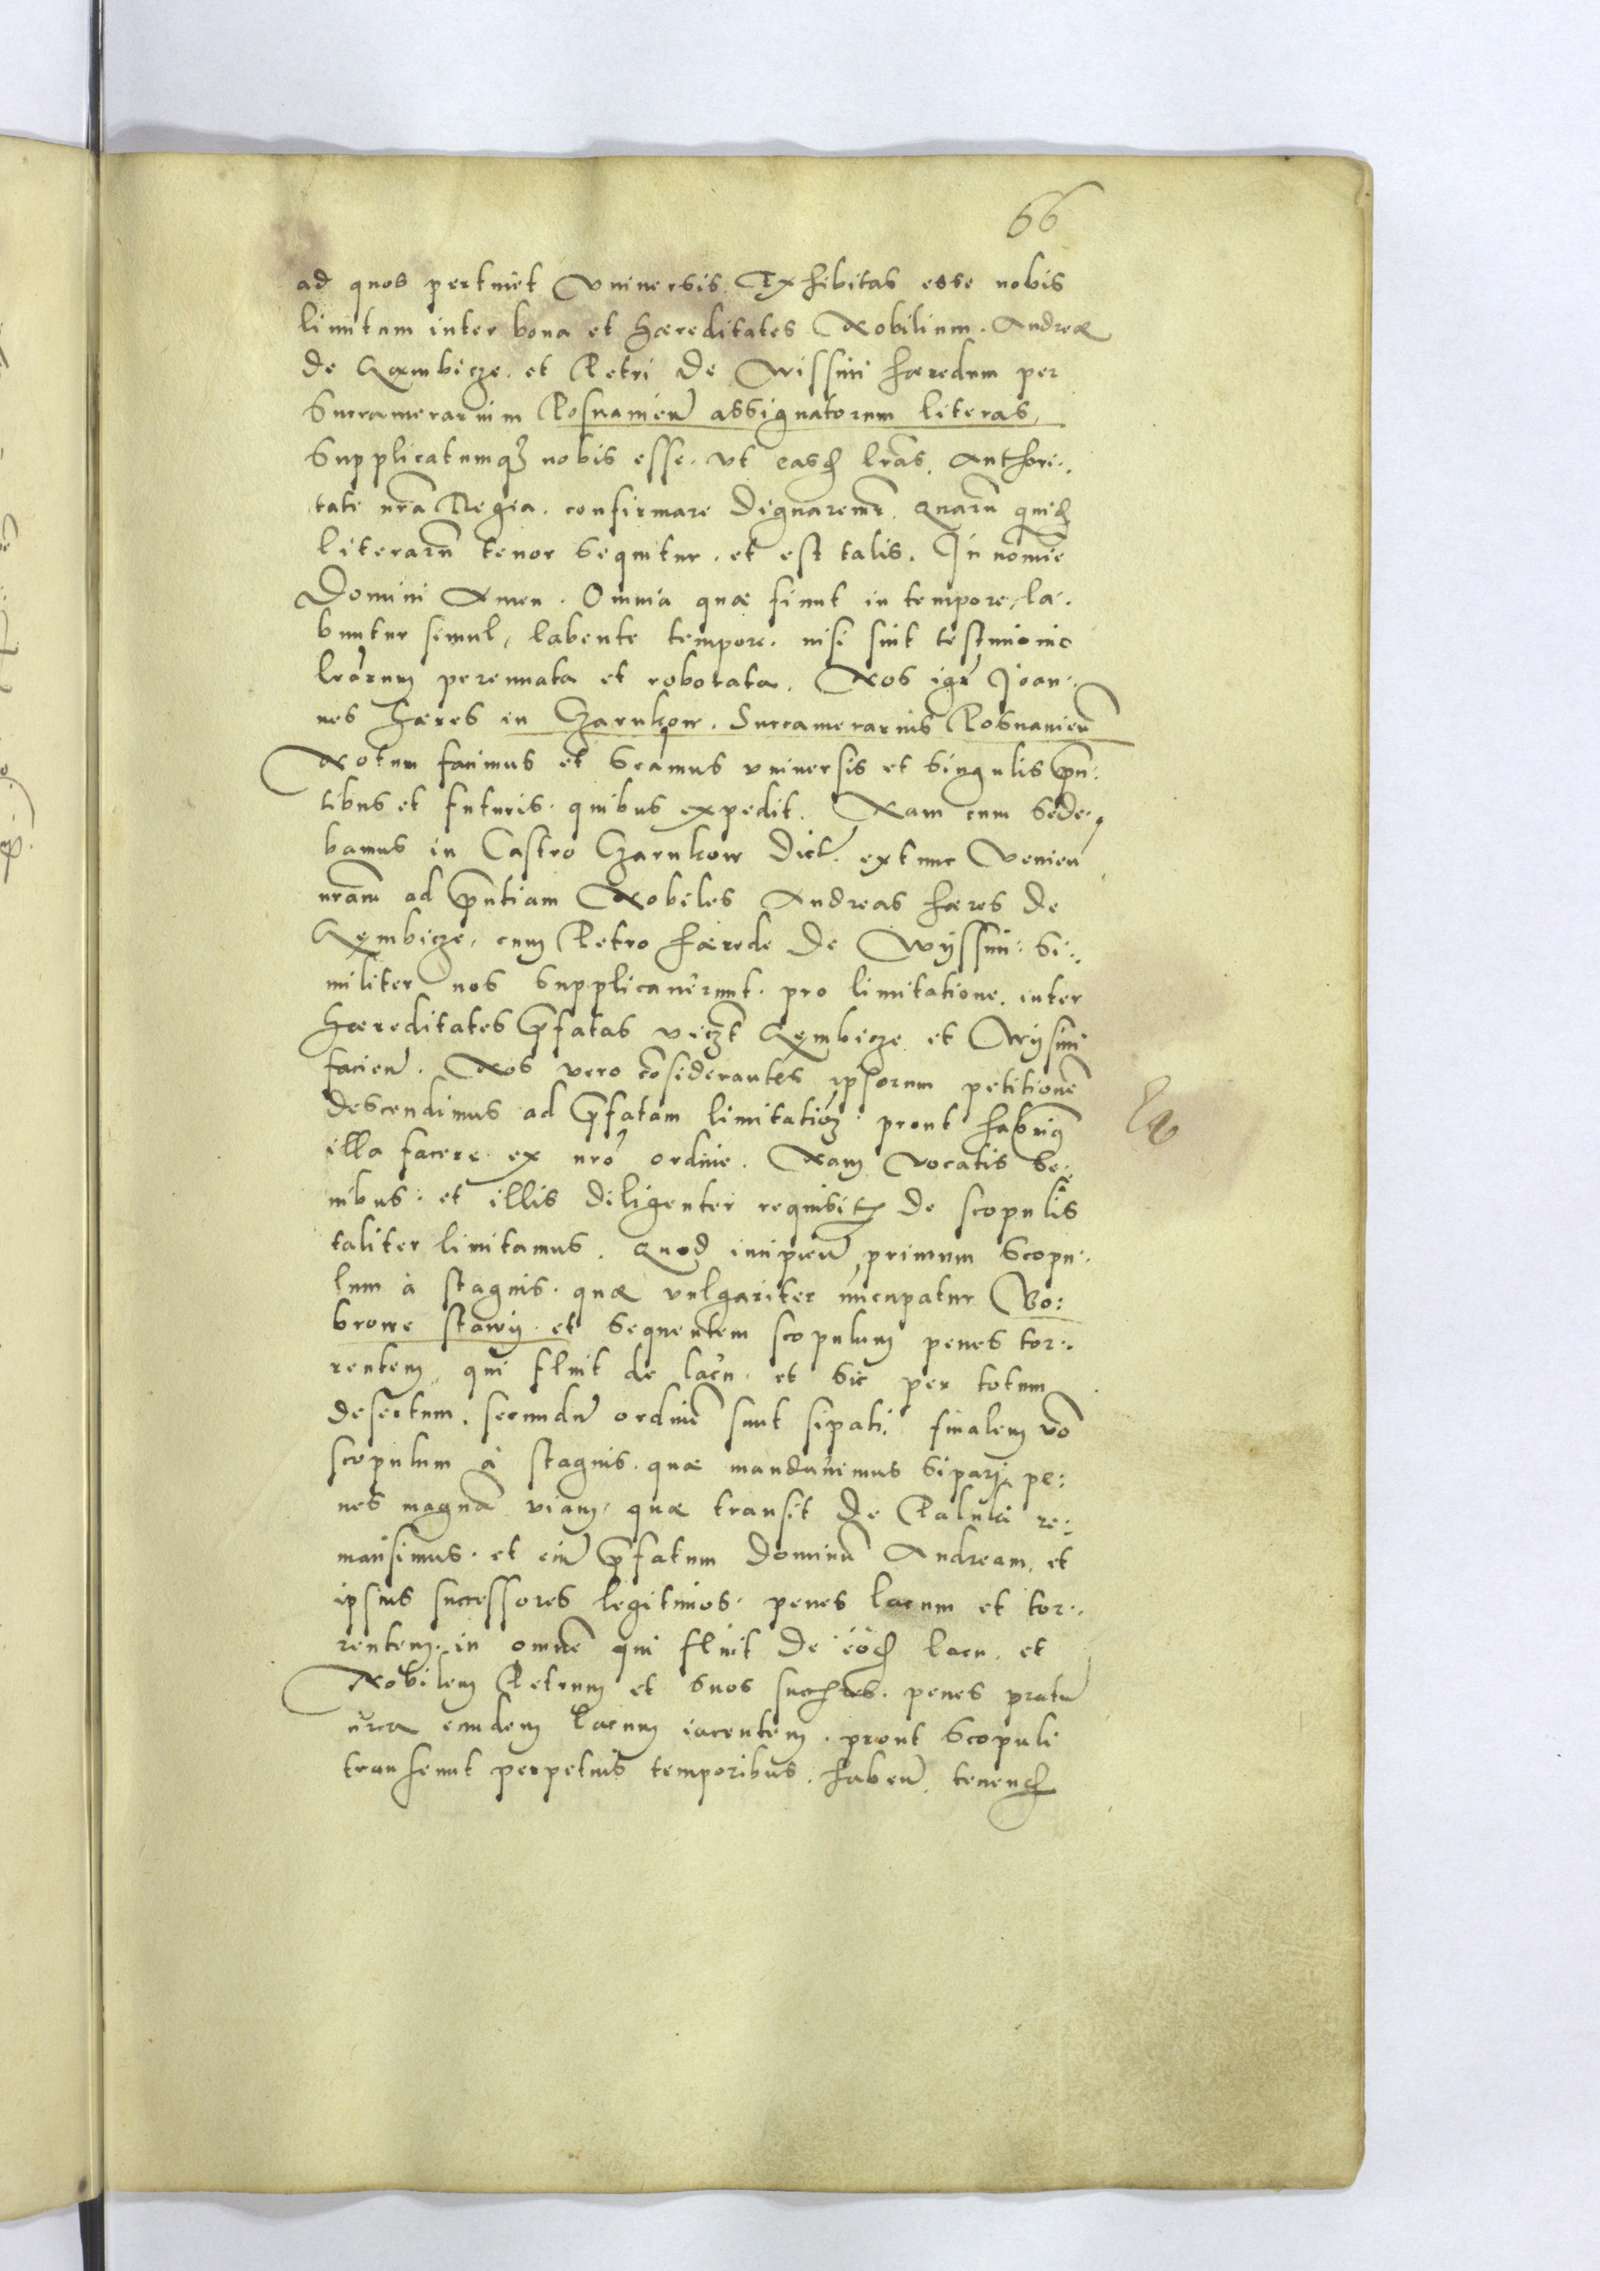 66
ad quos pertinēt Vniuersis. Exhibitas esse nobis
limitum inter bona et hæreditates Nobilium. Andreæ
de Gæmbicze. et Petri de Wissini hæredum per
Succamerarium Posnanień assignatorum literas,
Supplicatumqȝ nobis esse. vt easđ lrās. Authori:
tati nrā Regia. confirmare dignaremr. Quarū quiđ
literarū tenor sequitur. et est talis. In nomīe
Domini Amen. Omnia quæ fiunt in tempore, la:
buntur simul, labente tempore. nisi sint testimonio
lrārum perennata et roborata. Nos igr Joan:
nes hæres in Czarnkow. Succamerarius Posnanień
Notum facimus et scamus vniuersis et singulis pn:
tibus et futuris. quibus expedit. Nam cum sede:
bamus in Castro Czarnkow dict. extunc Venień
nrām ad pntiam Nobiles Andreas hæres de
Gęmbicze, cum Petro hærede de Wÿssini. si:
militer nos supplicauerunt. pro limitatione. inter
hæreditates pfatas viczt Gęmbicze et Wÿsini
facień. Nos vero cōsiderantes ipsorum petitionē
descendimus ad pfatam limitationȝ. prout
illa facere ex nrō ordine. Nam vocatis se:
nibus. et illis diligenter requisitis de scopulis
taliter limitamus. Quod incipień primum scopu:
lum à stagnis. quæ vulgariter nūcupatur Bo:
browe stawÿ. et sequentem scopulum penes tor:
rentem, qui fluit de lacu. et sic per totum
desertum. secundū ordinē sunt sipati. finalem vō
scopulum à stagnis. quæ mandauimus sipari, pe:
nes magnā viam, quæ transit de re:
mansimus. et pfatum Dominū Andream, et
ipsius successores legitimos. penes lacum et tor:
rentem. in omnē qui fluit de eōđ lacu. et
Nobilem Petrum et suos penes pratū
circa eundem lacum iacentem. prout scopuli
transeunt perpetuis temporibus. habeń. tenenđ